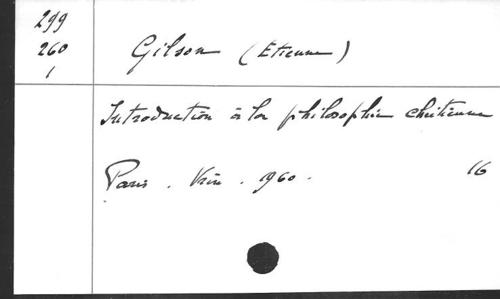 299
260
1
Gilson (Etienne)
Introduction à la philosophie chrétienne
Paris. Vrin. 1960.
16